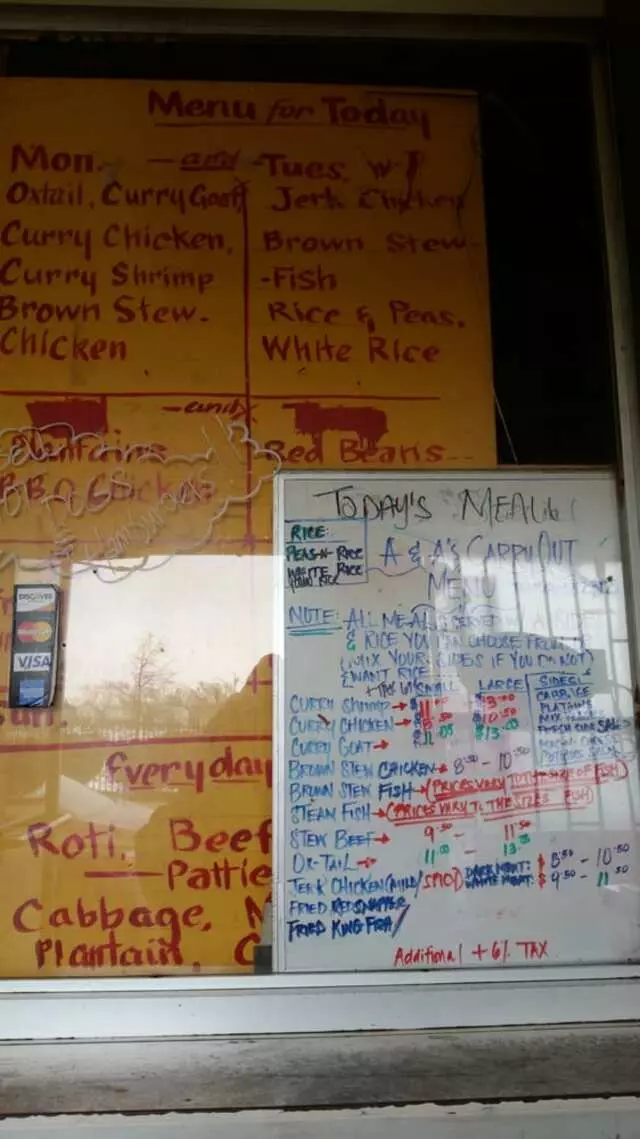 Menu for Today
Mon. - and - Tues.
Oxtail, Curry Goat, Jerk Chicken
Curry Chicken, Brown Stew
Curry Shrimp - Fish
Brown Stew. Rice & Peas.
Chicken White Rice
- and
Plantains Red Beans
BBQ Chicken
DISCOVER
MasterCard
VISA
Sun.
Everyday
Roti, Beef
Pattie
Cabbage,
Plantain.
TODAY'S MENU
RICE:
PEAS-N-RICE
WHITE RICE
A & A'S CARRY OUT
MENU
NOTE: ALL MEALS SERVED
& RICE YOU CAN CHOOSE FROM
(MIX YOUR SIDES IF YOU DO NOT)
WANT RICE
SMALL LARGE
SIDES:
CABBAGE
PLATAINS
CURRY SHRIMP
CURRY CHICKEN 10.50
CURRY GOAT $13.00
BROWN STEW CHICKEN 8.50 - 10.50
BROWN STEW FISH (PRICES VARY TO THE SIZE OF FISH)
STEAM FISH (PRICES VARY TO THE SIZE FISH)
STEW BEEF 9.50 - 11.50
OX-TAIL 11.00 - 13.00
JERK CHICKEN (MILD/SPICY) DARK MEAT: $8.50 - 10.50
WHITE MEAT: $9.50 - 11.50
FRIED RED SNAPPER
FRIED KING FISH
Additional + 6% TAX